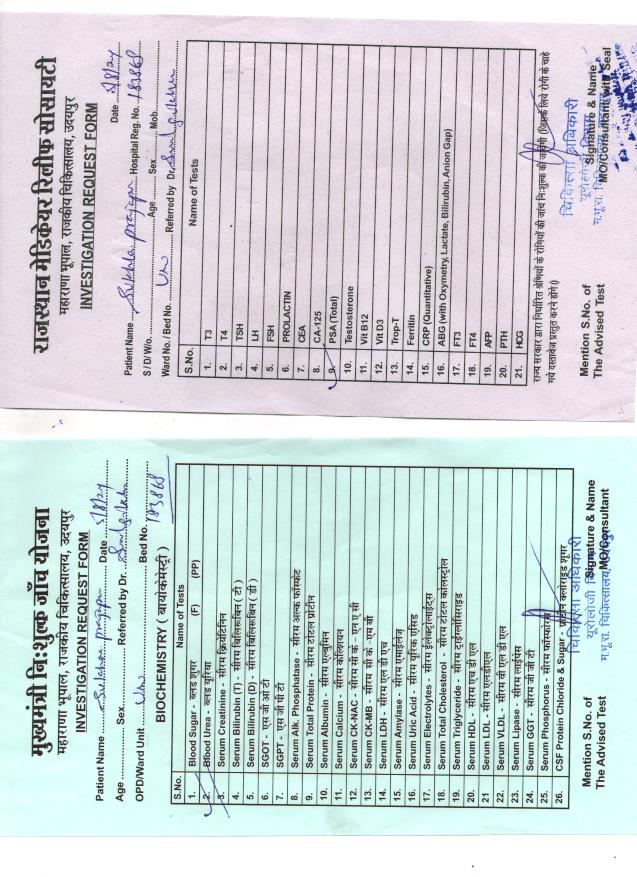 राजस्थान मेडिकेयर रिलीफ सोसायटी
महाराणा भूपाल, राजकीय चिकित्सालय, उदयपुर
INVESTIGATION REQUEST FORM
Date 5/8/24
Patient Name Hospital Reg. No. 183868
S / D/ W/o. Age Sex Mob.
Ward No. / Bed No. Referred by Dr.
S.No. Name of Tests
1. T3
2. T4
3. TSH
4. LH
5. FSH
6. PROLACTIN
7. CEA
8. CA-125
9. PSA (Total)
10. Testosterone
11. Vit B12
12. Vit D3
13. Trop-T
14. Ferritin
15. CRP (Quantitative)
16. ABG (with Oxymetry, Lactate, Bilirubin, Anion Gap)
17. FT3
18. FT4
19. AFP
20. PTH
21. HCG
राज्य सरकार द्वारा निर्धारित श्रेणियों के रोगियों की जांच निःशुल्क की जायेगी (जिसके लिये रोगी के चाहे
गये दस्तावेज प्रस्तुत करने होंगे।)
चिकित्सा अधिकारी
यूरोलोजी विभाग
Mention S.No. of Signature & Name
The Advised Test MO/Consultant with Seal
मुख्यमंत्री निःशुल्क जाँच योजना
महाराणा भूपाल, राजकीय चिकित्सालय, उदयपुर
INVESTIGATION REQUEST FORM
Patient Name Date 5/8/24
Age Sex Referred by Dr.
OPD/Ward Unit Bed No. 183868
BIOCHEMISTRY ( बायोकेमेस्ट्री )
S.No. Name of Tests
1. Blood Sugar - ब्लड शुगर (F) (PP)
2. Blood Urea - ब्लड यूरिया
3. Serum Creatinine - सीरम क्रियेटिनिन
4. Serum Bilirubin (T) - सीरम बिलिरूबिन ( टी )
5. Serum Bilirubin (D) - सीरम बिलिरूबिन ( डी )
6. SGOT - एस जी ओ टी
7. SGPT - एस जी पी टी
8. Serum Alk. Phosphatase - सीरम अल्क फॉस्फेट
9. Serum Total Protein - सीरम टोटल प्रोटीन
10. Serum Albumin - सीरम एल्बुमिन
11. Serum Calcium - सीरम केल्शियम
12. Serum CK-NAC - सीरम सी के - एन ए सी
13. Serum CK-MB - सीरम सी के -एम बी
14. Serum LDH - सीरम एल डी एच
15. Serum Amylase - सीरम एमाईलेज
16. Serum Uric Acid - सीरम यूरिक एसिड
17. Serum Electrolytes - सीरम ईलक्ट्रोलाईट्स
18. Serum Total Cholesterol - सीरम टोटल कोलस्ट्रोल
19. Serum Triglyceride - सीरम ट्राईग्लिसिराइड
20. Serum HDL - सीरम एच डी एल
21 Serum LDL - सीरम एलडीएल
22. Serum VLDL - सीरम वी एल डी एल
23. Serum Lipase - सीरम लाईपेस
24. Serum GGT - सीरम जी जी टी
25. Serum Phosphorus - सीरम फॉस्फोरस
26. CSF Protein Chloride & Sugar - प्रोटीन क्लोराइड शुगर
चिकित्सा अधिकारी
यूरोलोजी विभाग
Mention S.No. of Signature & Name
The Advised Test MO/Consultant